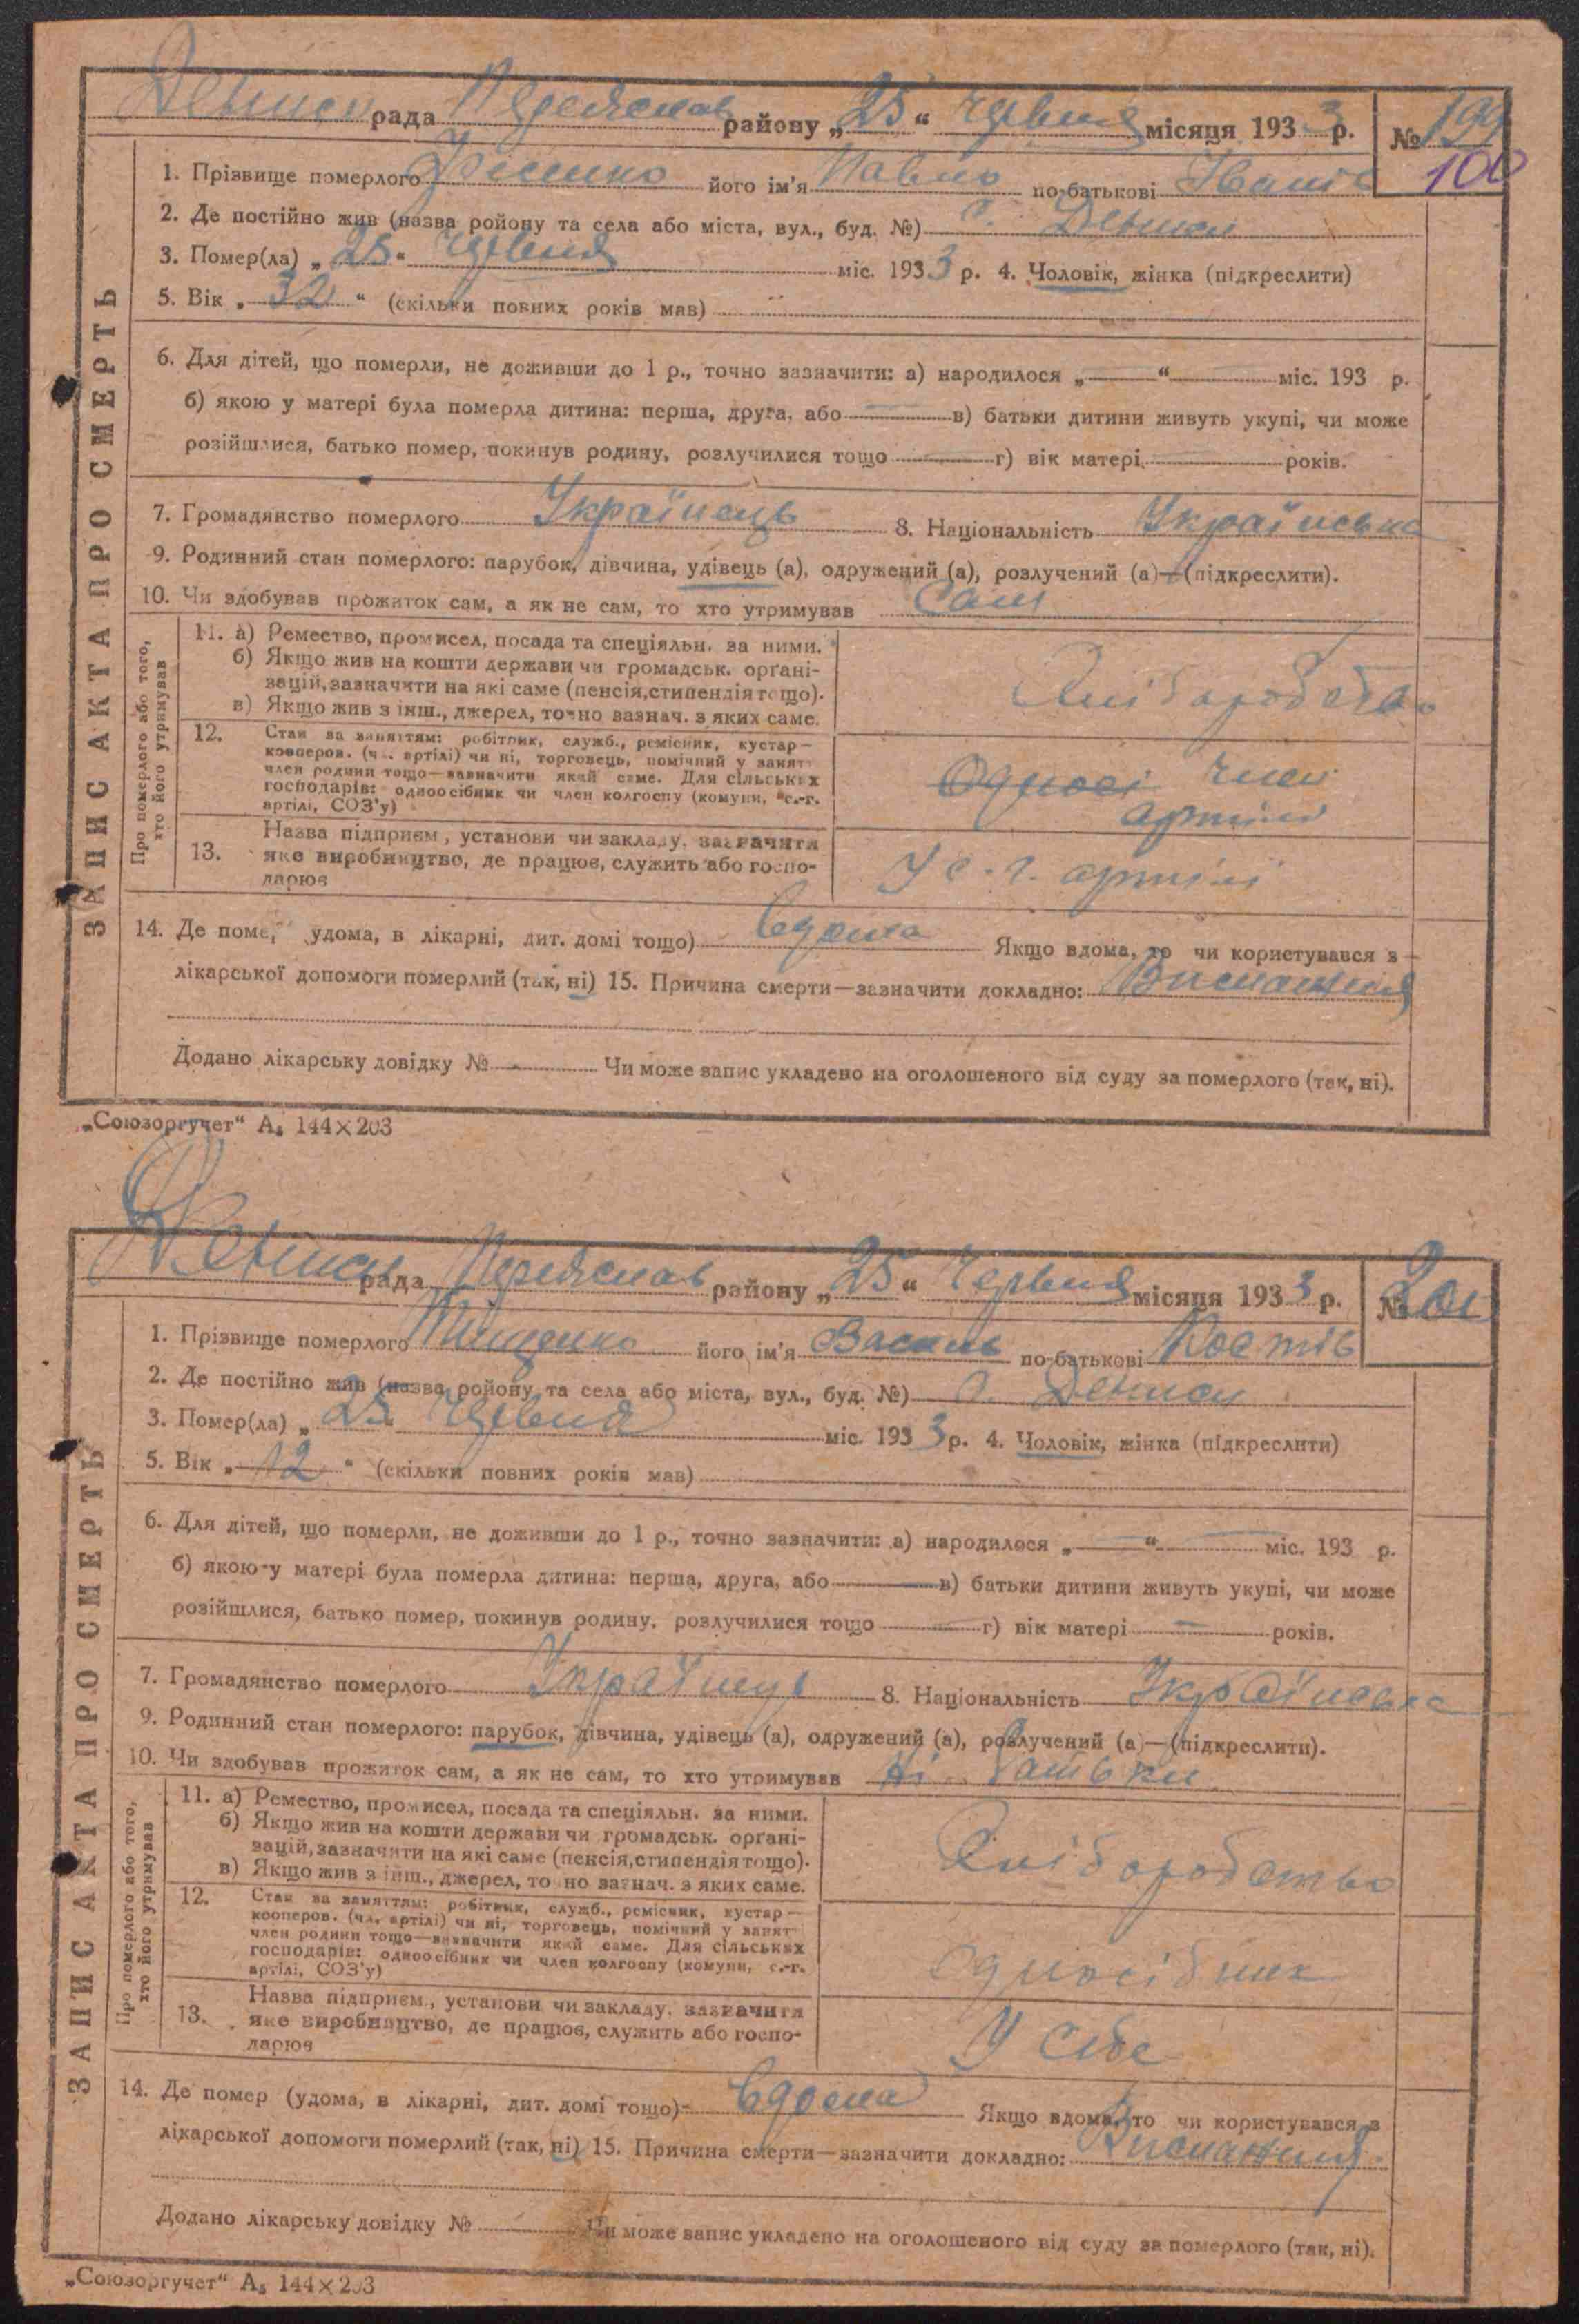 Деньги рада Переяслав району „25“ Червня місяця 1933 р. № 199
100
1. Прізвище померлого його ім'я Павло по-батькові Іванів
2. Де постійно жив (назва ройону та села або міста, вул., буд. №) с.
3. Помер(ла) „25“ Червня міс. 1933 р. 4. Чоловік, жінка (підкреслити)
5. Вік „32“ (скільки повних років мав)
6. Для дітей, що померли, не доживши до 1 р., точно зазначити: а) народилося „—“ міс. 193 р.
б) якою у матері була померла дитина: перша, друга, або — в) батьки дитини живуть укупі, чи може
розійшлися, батько помер, покинув родину, розлучилися тощо — г) вік матері — років.
7. Громадянство померлого Українець 8. Національність Українська
9. Родинний стан померлого: парубок, дівчина, удівець (а), одружений (а), розлучений (а)—(підкреслити).
10. Чи здобував прожиток сам, а як не сам, то хто утримував Сам
ЗАПИС АКТА ПРО СМЕРТЬ
Про померлого або того,
хто його утримував
11. а) Ремество, промисел, посада та спеціяльн. за ними.
б) Якщо жив на кошти держави чи громадськ. орґані-
зацій, зазначити на які саме (пенсія, стипендія тощо).
в) Якщо жив з інш., джерел, точно зазнач. з яких саме.
Хліборобство
12. Стан за заняттям: робітник, служб., ремісник, кустар—
кооперов. (чл. артілі) чи ні, торговець, помічний у занят
член родини тощо—зазначити який саме. Для сільських
господарів: одноосібник чи член колгоспу (комуни, с.-г.
артілі, СОЗ'у)
член
артілі
13. Назва підприєм., установи чи закладу, зазначити
яке виробництво, де працює, служить або госпо-
дарює
У с.-г. артілі
14. Де поме, удома, в лікарні, дит. домі тощо) вдома Якщо вдома, то чи користувався з
лікарської допомоги померлий (так, ні) 15. Причина смерти—зазначити докладно: Виснаження
Додано лікарську довідку № — Чи може запис укладено на оголошеного від суду за померлого (так, ні).
„Союзоргучет“ А₅ 144×203
рада Переяслав району „25“ Червня місяця 1933 р. № 200
1. Прізвище померлого Тищенко його ім'я Василь по-батькові Костів
2. Де постійно жив (назва ройону та села або міста, вул., буд. №) с.
3. Помер(ла) „25“ Червня міс. 1933 р. 4. Чоловік, жінка (підкреслити)
5. Вік „12“ (скільки повних років мав)
6. Для дітей, що померли, не доживши до 1 р., точно зазначити: а) народилося „—“ міс. 193 р.
б) якою у матері була померла дитина: перша, друга, або — в) батьки дитини живуть укупі, чи може
розійшлися, батько помер, покинув родину, розлучилися тощо — г) вік матері — років.
7. Громадянство померлого Українець 8. Національність Українська
9. Родинний стан померлого: парубок, дівчина, удівець (а), одружений (а), розлучений (а)—(підкреслити).
10. Чи здобував прожиток сам, а як не сам, то хто утримував Ні батьки
ЗАПИС АКТА ПРО СМЕРТЬ
Про померлого або того,
хто його утримував
11. а) Ремество, промисел, посада та спеціяльн. за ними.
б) Якщо жив на кошти держави чи громадськ. орґані-
зацій, зазначити на які саме (пенсія, стипендія тощо).
в) Якщо жив з інш., джерел, точно зазнач. з яких саме.
Хліборобство
12. Стан за заняттям: робітник, служб., ремісник, кустар—
кооперов. (чл. артілі) чи ні, торговець, помічний у занят
член родини тощо—зазначити який саме. Для сільських
господарів: одноосібник чи член колгоспу (комуни, с.-г.
артілі, СОЗ'у)
Одноосібник
13. Назва підприєм., установи чи закладу, зазначити
яке виробництво, де працює, служить або госпо-
дарює
У себе
14. Де помер (удома, в лікарні, дит. домі тощо) вдома Якщо вдома, то чи користувався з
лікарської допомоги померлий (так, ні) 15. Причина смерти—зазначити докладно: Виснаження
Додано лікарську довідку № — Чи може запис укладено на оголошеного від суду за померлого (так, ні).
„Союзоргучет“ А₅ 144×203